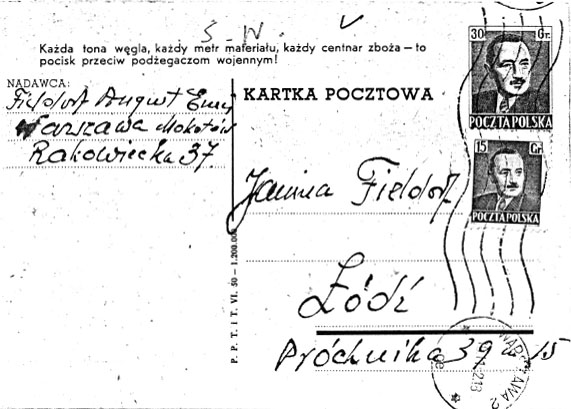 S. W. V
Każda tona węgla, każdy metr materiału, każdy centnar zboża — to
pocisk przeciw podżegaczom wojennym!
NADAWCA:
Fieldorf August Emil
Warszawa Mokotów
Rakowiecka 37
KARTKA POCZTOWA
30 Gr.
POCZTA POLSKA
15 Gr
POCZTA POLSKA
Janina Fieldorf
Łódź
Próchnika 39 m 15
P. P. T. i T. VI. 50 — 1.200.000
WARSZAWA 2